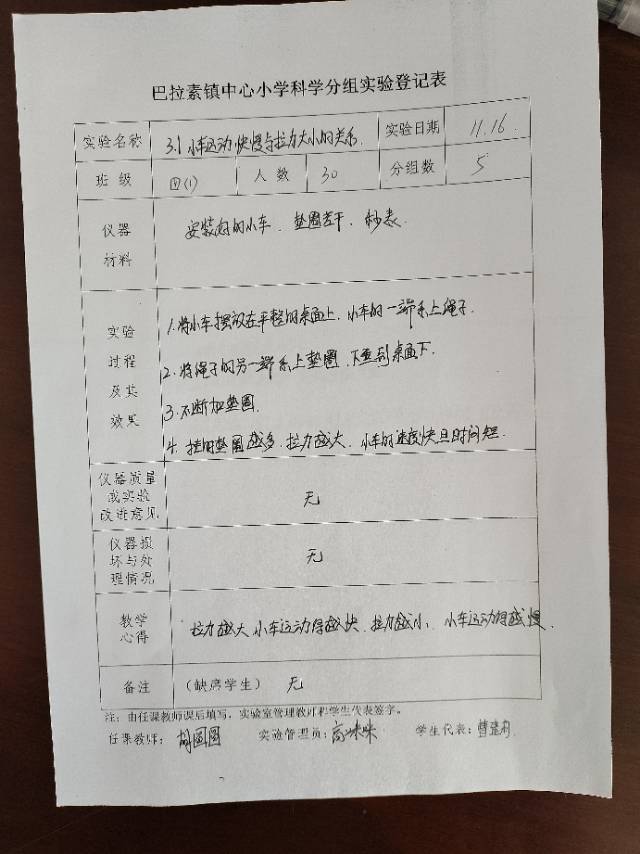 巴拉素镇中心小学科学分组实验登记表
实验名称 3.1 小车运动快慢与拉力大小的关系 实验日期 11.16
班级 四(1) 人数 30 分组数 5
仪器 安装好的小车、垫圈若干、秒表
材料
实验 1.将小车摆放在平整的桌面上,小车的一端系上绳子.
过程 2.将绳子的另一端系上垫圈,下垂到桌面下.
及其 3.不断加垫圈.
效果 4.挂的垫圈越多,拉力越大,小车的速度快且时间短.
仪器质量
或实验 无
改进意见
仪器损
坏与处 无
理情况
教学 拉力越大小车运动得越快、拉力越小、小车运动得越慢.
心得
备注 (缺席学生) 无
注:由任课教师课后填写,实验室管理教师和学生代表签字。
任课教师: 实验管理员: 学生代表: